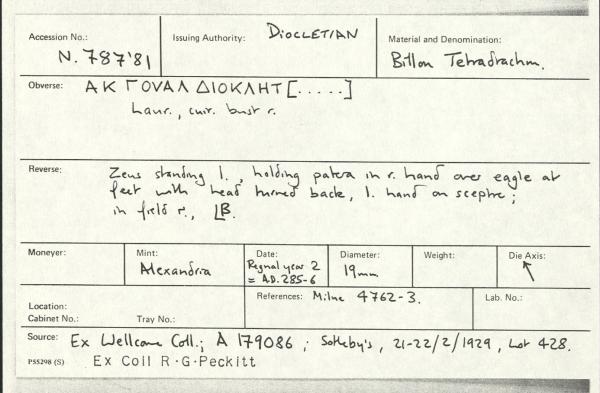 Accession No.: N. 787'81
Issuing Authority: DIOCLETIAN
Material and Denomination: Billon Tetradrachm.
Obverse: ΑΚ ΓΟVΑΛ ΔΙΟΚΛΗΤ[.....]
Laur., cuir. bust r.
Reverse: Zeus standing l., holding patera in r. hand over eagle at
feet with head turned back, l. hand on sceptre;
in field r., LB.
Moneyer:
Mint: Alexandria
Date: Regnal year 2
= A.D. 285-6
Diameter: 19mm
Weight:
Die Axis: ↖
Location:
Cabinet No.: Tray No.:
References: Milne 4762-3.
Lab. No.:
Source: Ex Wellcome Coll.; A 179086; Sotheby's, 21-22/2/1929, Lot 428.
PS5298 (S) Ex Coll R.G.Peckitt